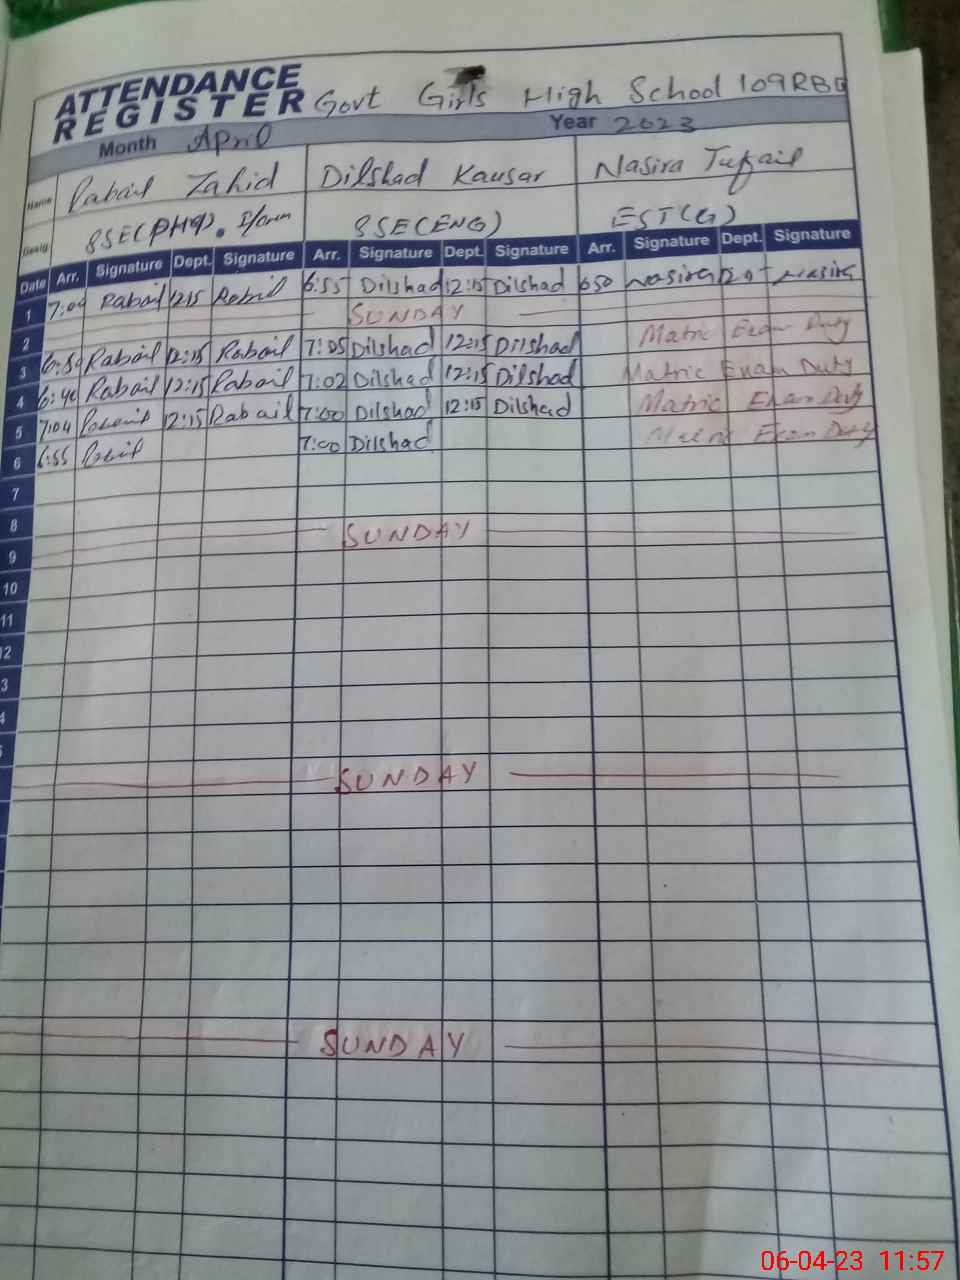 ATTENDANCE
REGISTER Govt Girls High School 109RB
Month April Year 2023
Name Rabail Zahid Dilshad Kausar Nasira Tufail
Desig. SSE(PHY). SSE(ENG) EST(G)
Date Arr. Signature Dept. Signature Arr. Signature Dept. Signature Arr. Signature Dept. Signature
1 7:04 Rabail 1215 Rabail 6:55 Dilshad 12:15 Dilshad 650 Nasira Nasira
2 SUNDAY
3 6:50 Rabail 12:15 Rabail 7:05 Dilshad 12:15 Dilshad Matric Exam Duty
4 6:40 Rabail 12:15 Rabail 7:02 Dilshad 12:15 Dilshad Matric Exam Duty
5 7:04 Rabail 12:15 Rabail 7:00 Dilshad 12:15 Dilshad Matric Exam Duty
6 6:55 Rabail 7:00 Dilshad Matric Exam Duty
7
8
9 SUNDAY
10
11
2
3
4
SUNDAY
SUNDAY
06-04-23 11:57